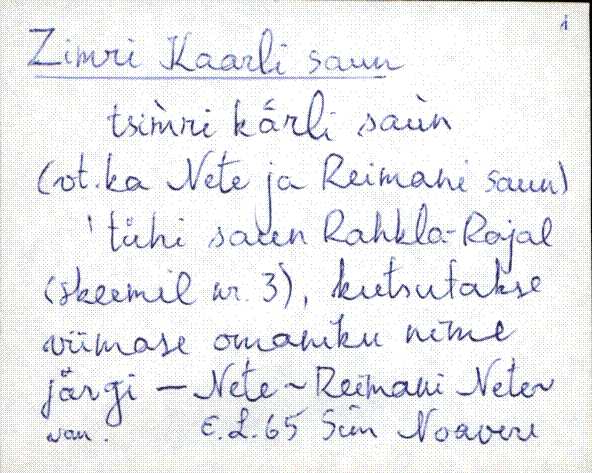 1
Zimri Kaarli saun
tsìmri kǻrli saùn
(vt. ka Nete ja Reimani saun)
'tühi saun Rahkla-Rajal
(skeemil nr. 3), kutsutakse
viimase omaniku nime
järgi — Nete ~ Reimani Nete ~
van. E. L. 65 Sim Noaveve